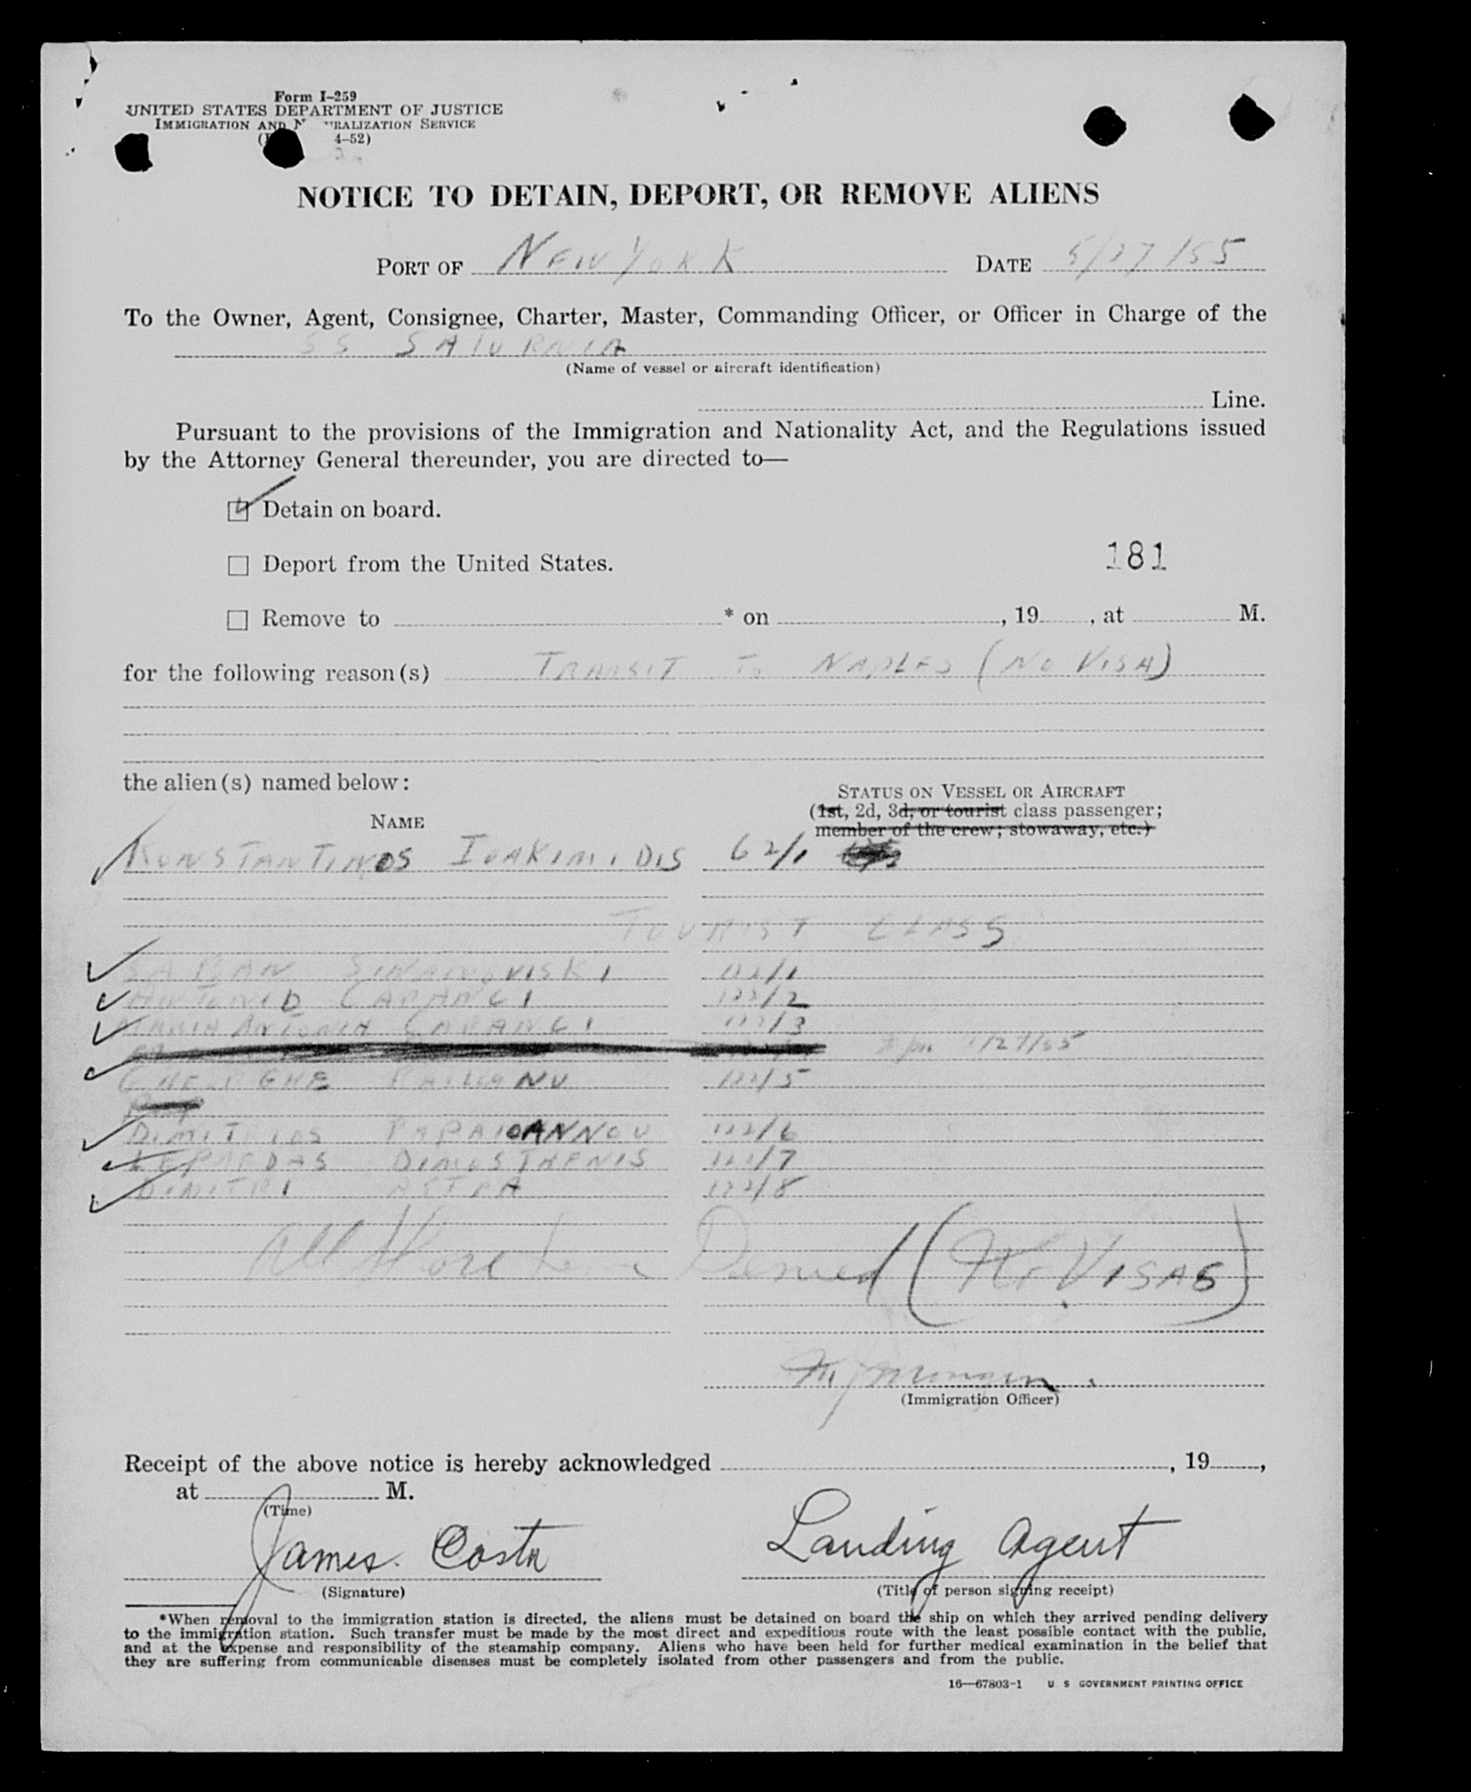 Form I-259
UNITED STATES DEPARTMENT OF JUSTICE
IMMIGRATION AND NATURALIZATION SERVICE
4-52)
NOTICE TO DETAIN, DEPORT, OR REMOVE ALIENS
PORT OF NEW YORK DATE 5/27/55
To the Owner, Agent, Consignee, Charter, Master, Commanding Officer, or Officer in Charge of the
SS SATURNIA
(Name of vessel or aircraft identification)
Line.
Pursuant to the provisions of the Immigration and Nationality Act, and the Regulations issued
by the Attorney General thereunder, you are directed to—
Detain on board.
Deport from the United States.
181
Remove to * on , 19 , at M.
for the following reason(s) TRANSIT TO NAPLES (NO VISA)
the alien(s) named below:
STATUS ON VESSEL OR AIRCRAFT
(1st, 2d, 3d, or tourist class passenger;
NAME
member of the crew; stowaway, etc.)
KONSTANTINOS IOAKIMIDIS 62/1
TOURIST CLASS
SABAN 122/1
CAPANCI 122/2
MARIA ANTONIA CAPANCI 122/3
GHEORGHE 122/5
DIMITRIOS PAPAIOANNOU 122/6
DIMOSTHENIS 122/7
DIMITRI ASTRA 122/8
All Shore Denied (No VISAS)
(Immigration Officer)
Receipt of the above notice is hereby acknowledged , 19 ,
at M.
(Time)
James Costa Landing Agent
(Signature) (Title of person signing receipt)
*When removal to the immigration station is directed, the aliens must be detained on board the ship on which they arrived pending delivery
to the immigration station. Such transfer must be made by the most direct and expeditious route with the least possible contact with the public,
and at the expense and responsibility of the steamship company. Aliens who have been held for further medical examination in the belief that
they are suffering from communicable diseases must be completely isolated from other passengers and from the public.
16—67803-1 U S GOVERNMENT PRINTING OFFICE